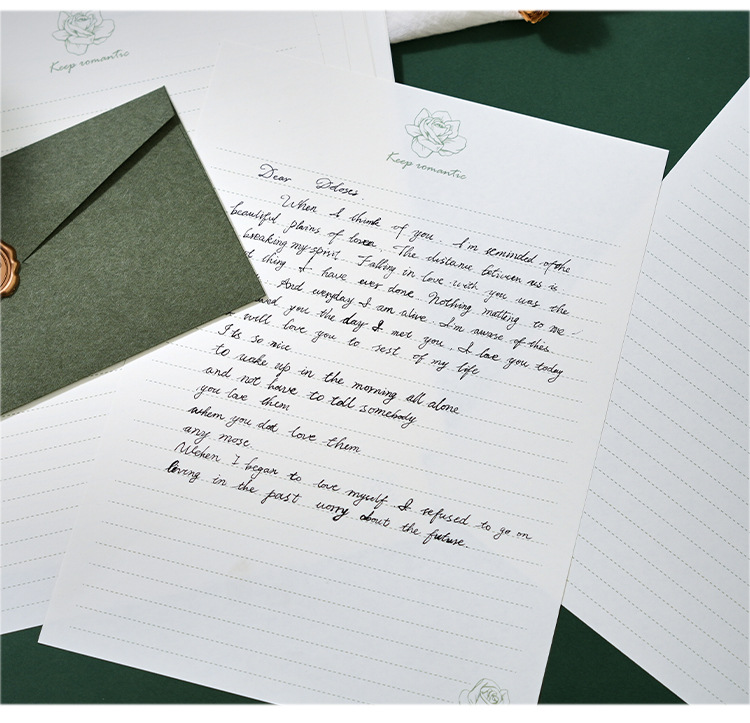 Keep romantic
Keep romantic
Dear Doloses
When I think of you. I'm reminded of the
beautiful plains of The distance between us is
breaking my spirit. Falling in love with you was the
t thing I have ever done. Nothing matting to me
And everyday I am alive. I'm aware of this
ved you the day I met you. I love you today
will love you to rest of my life
It's so nice
to wake up in the morning all alone
and not have to tell somebody
you love them
when you dot love them
any more
When I began to love myself I refused to go on
loving in the past worry about the future.